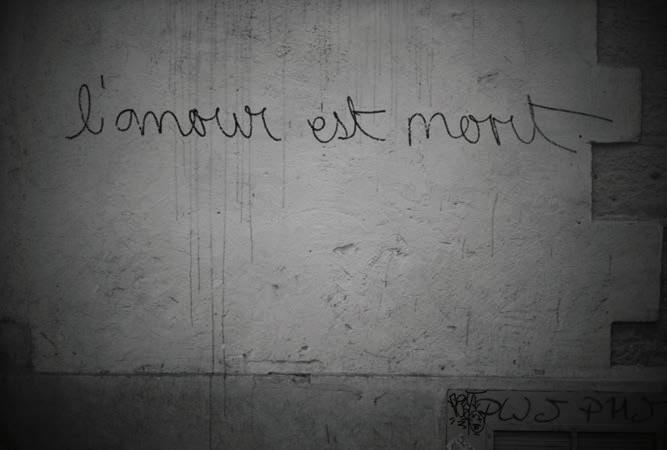 l'amour est mort.
PWJ PHJ